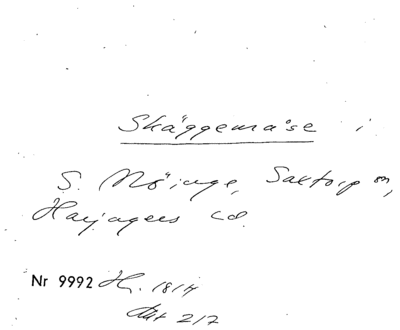 Skäggemåse i
S. Möinge, Saxtorp sn,
Harjagers hd.
Nr 9992 H. 1814
Akt 217